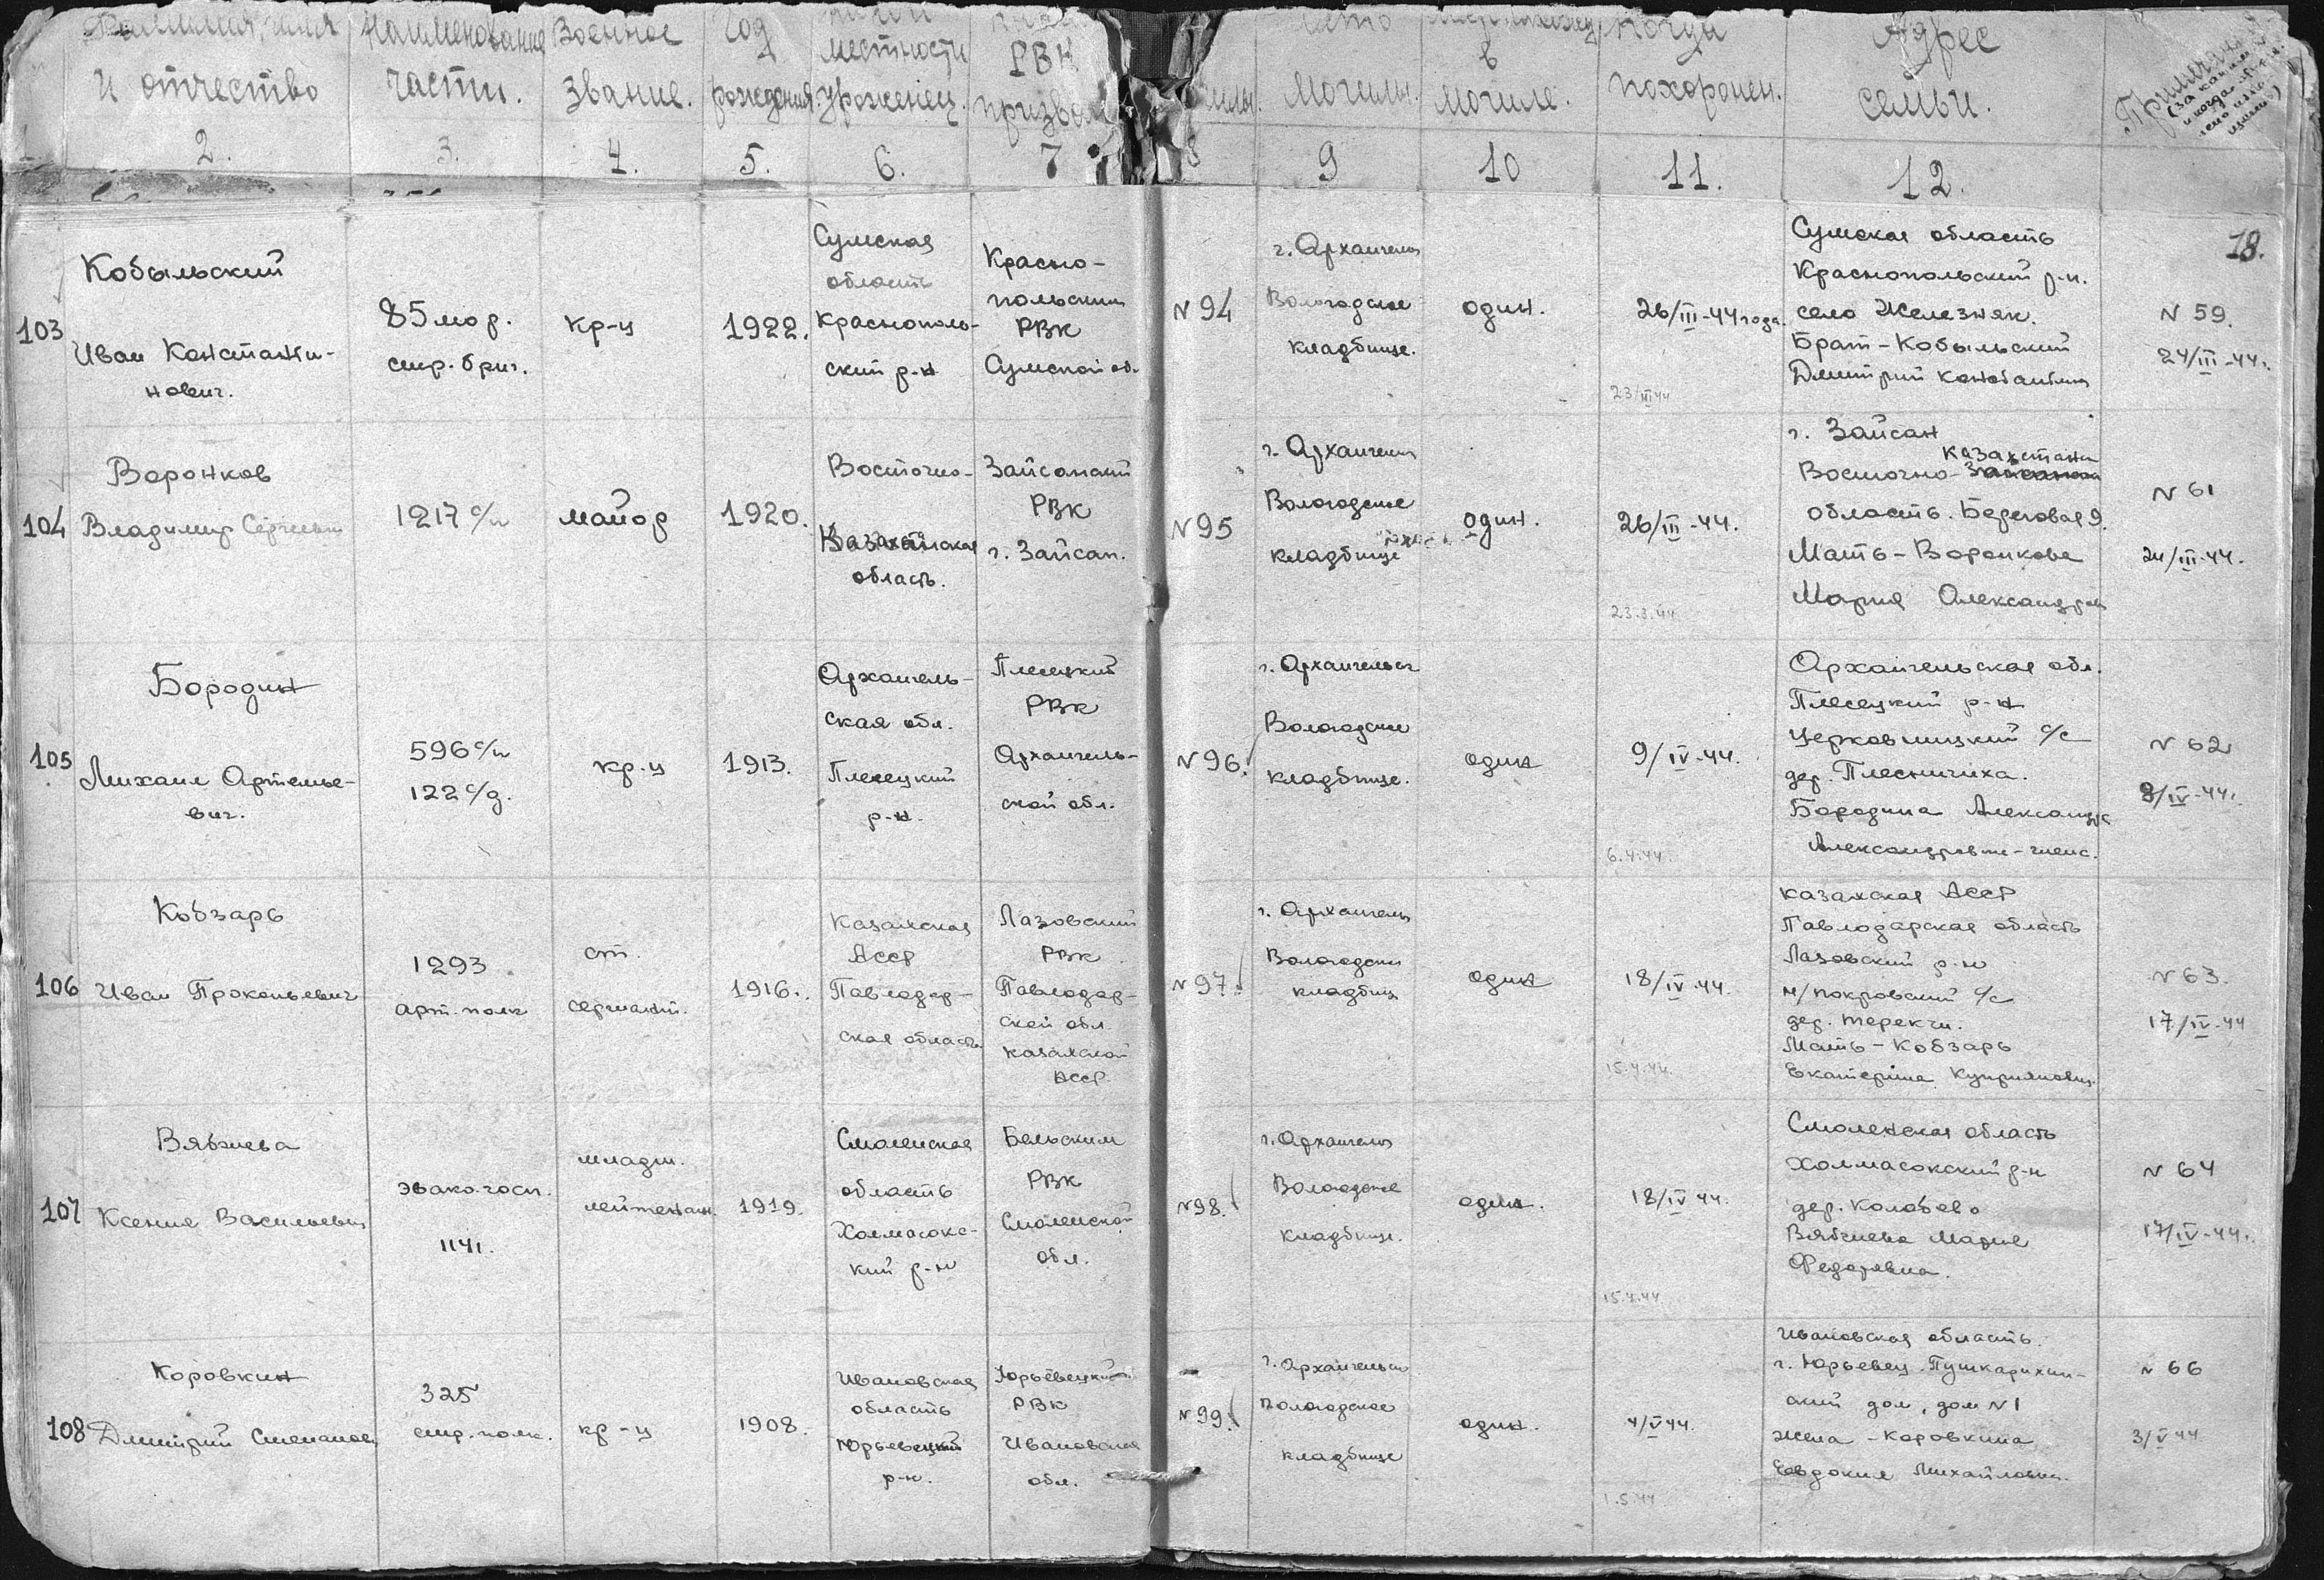 Фамилия, имя
и отчество
Наименование
части.
Военное
звание.
Год
рождения.
местности
уроженец.
РВК
призван
могилы.
в
могиле.
Когда
похоронен.
Адрес
семьи.
2. 3. 4. 5. 6. 7 8 9 10 11. 12.
18.
103
Кобыльский
Иван Константи-
нович.
85 мор.
стр. бриг.
кр-ц
1922.
Сумская
область
Краснополь-
ский р-н
Красно-
польским
РВК
Сумской об.
N 94
г. Архангельск
Вологодское
кладбище.
один.
26/III-44 года.
23/III 44
Сумская область
Краснопольский р-н.
село Железняк.
Брат - Кобыльский
Дмитрий
N 59.
24/III-44г.
104
Воронков
Владимир Сергеевич
1217 с/п
майор
1920.
Восточно-
Казахстанская
область.
Зайсанский
РВК
г. Зайсан.
N 95
г. Архангельск
Вологодское
кладбище
один.
26/III-44.
23.3.44
г. Зайсан
Казахстанск
Восточно-
область. Береговая 9.
Мать - Воронкова
Мария Александров
N 61
24/III-44.
105
Бородин
Михаил Артемье-
вич.
596 с/п
122 с/д.
кр-ц
1913.
Архангель-
ская обл.
Плесецкий
р-н.
Плесецкий
РВК
Архангель-
ской обл.
N 96.
г. Архангельск
Вологодское
кладбище.
один
9/IV-44.
6.4.44.
Архангельская обл.
Плесецкий р-н
Церковницкий с/с
дер. Плесничиха.
Бородина Александра
Александровна -
N 62
8/IV-44г.
106
Кобзарь
Иван Прокопьевич
1293
арт. полк
ст.
сержант.
1916.
Казахская
АССР
Павлодар-
ская область
Лазовский
РВК
Павлодар-
ской обл.
Казахской
АССР.
N 97.
г. Архангельск
Вологодское
кладбище
один
18/IV-44.
15.4.44.
Казахская АССР
Павлодарская область
Лазовский р-н
н/покровский с/с
дер. Терекчи.
Мать - Кобзарь
Екатерина Куприяновна.
N 63.
17/IV-44
107
Вябжева
Ксения Васильевна
эвако. госп.
1141.
младш.
лейтенант.
1919.
Смоленская
область
Холмасокс-
кий р-н
Бельским
РВК
Смоленской
обл.
N 98.
г. Архангельск
Вологодское
кладбище.
один.
18/IV 44.
15.4.44
Смоленская область
Холмасокский р-н
дер. Колобово
Мария
Федоровна.
N 64
17/IV-44г.
108
Коровкин
Дмитрий Степанович
325
стр. полк.
кр-ц
1908.
Ивановская
область
Юрьевецкий
р-н.
Юрьевецкий
РВК
Ивановская
обл.
N 99.
г. Архангельск
Вологодское
кладбище
один.
4/V 44.
1.5.44
Ивановская область.
г. Юрьевец. Пушкарихин-
ский дол, дом N 1
жена - Коровкина
Евдокия Михайловна.
N 66
3/V 44.